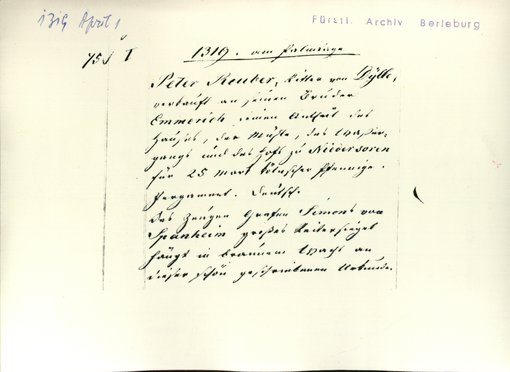 1319 April 1
Fürstl. Archiv Berleburg
1319. am Palmtage
Peter Reuber, Ritter von Dylle,
verkauft an seinen Bruder
Emmerich seinen Antheil des
Hauses, der Mühle, des Wasser-
gangs und des Hofs zu Niedersoren
für 25 Mark kölnischer Pfennige.
Pergament. Deutsch.
Des Zeugen Grafen Simons von
Spanheim großes Reitersiegel
hängt in braunem Wachs an
dieser schön geschriebenen Urkunde.